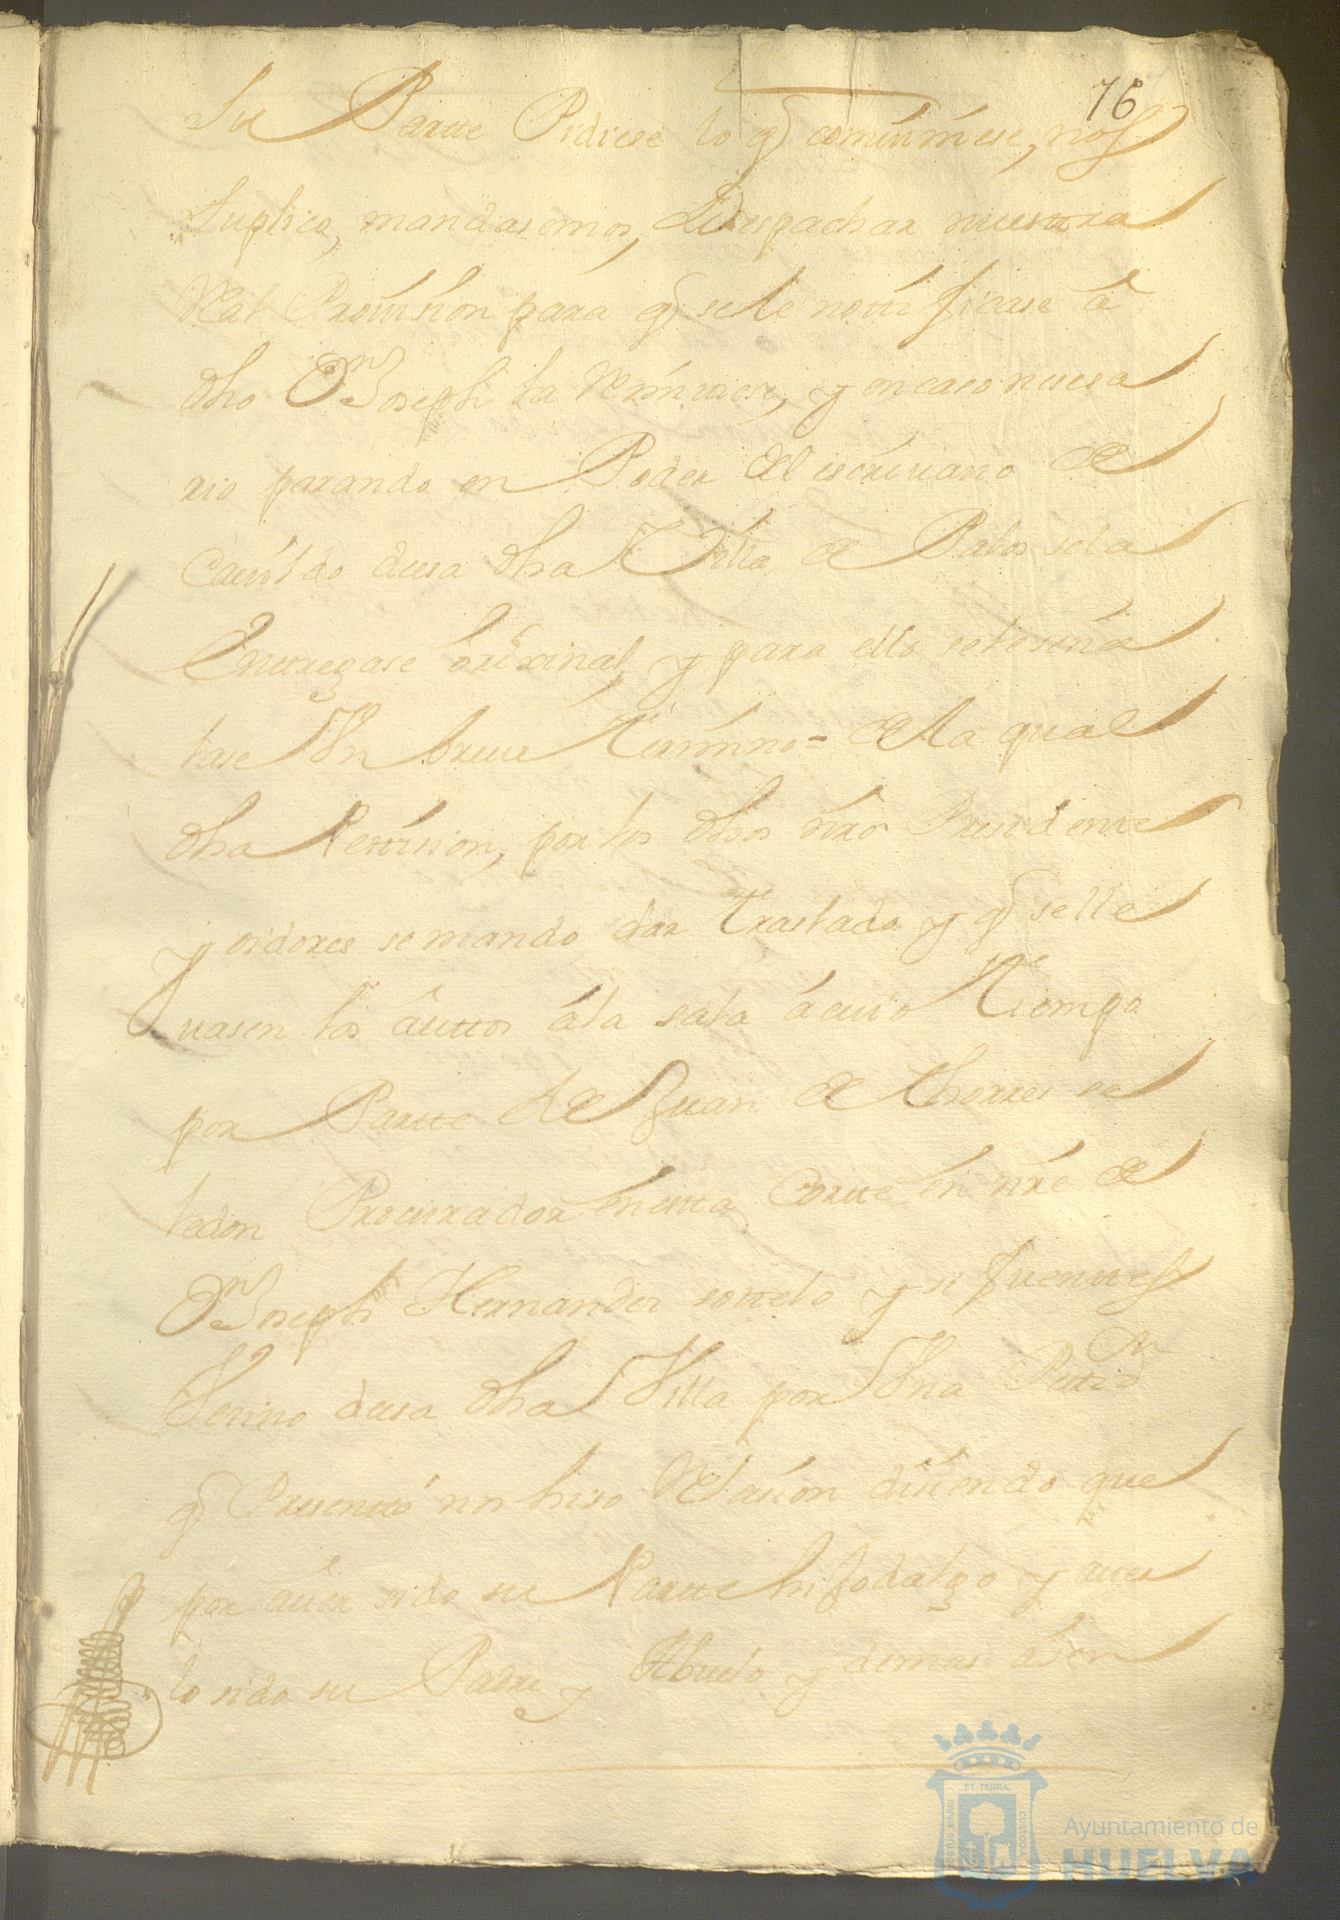 76
Su Partte Pidiese lo q̃ combiniese, nos
Suplico, mandasemos, Despachar nuesttra
Real Provision para q̃ se le nottificase â
dho Dn Joseph la Remitiese, y en caso nesesa
rio parando en Poder del escrivano de
Cavildo desa dha Villa de Palos se la
Enttregase original, y para ello se le señа
lase Un breve Termino = de la qual
dha Pettision, por los dhos nro Presidentte
y oidores se mando dar Traslado y q̃ se lle
vasen los auttos â la sala â cuio Tiempo
por Partte de Juan de Thorres
ledon Procurador en estta Cortte en nre de
Dn Joseph Hernandez sottelo y si fuenttes
Vecino desa dha Villa por Una Pettion
q̃ Presentto nos hiso Relasion disiendo que
por aver sido su Partte hijodalgo y aver
lo sido su Padre, y Abuelo y demas asen
ET TERRÆ
Ayuntamiento de
HUELVA